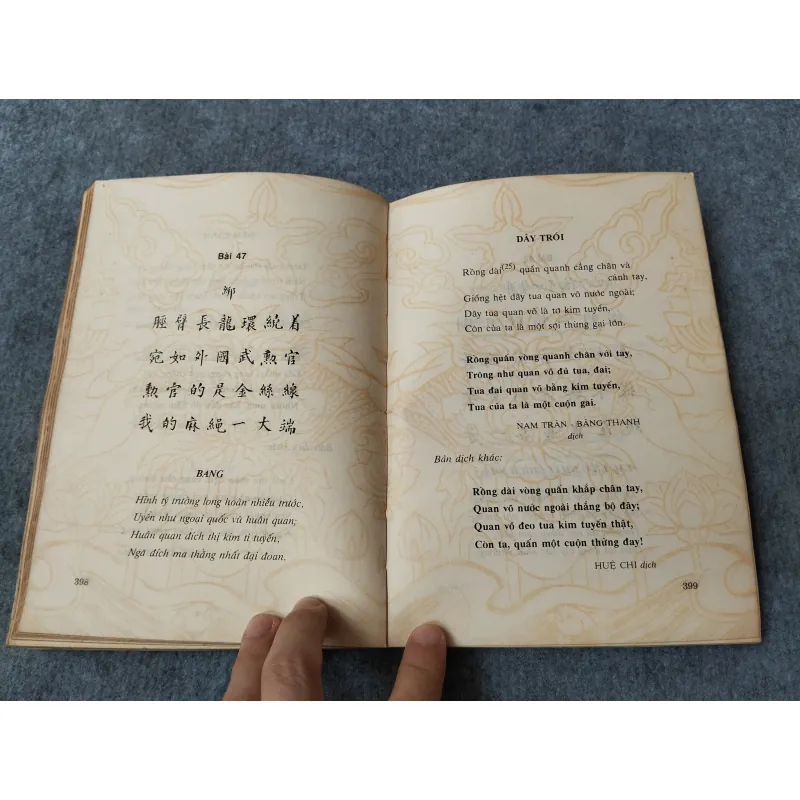 Bài 47
綁
脛臂長龍環繞着
宛如外國武勲官
勲官的是金絲線
我的麻繩一大端
BANG
Hĩnh tý trường long hoàn nhiễu trước,
Uyển như ngoại quốc vũ huân quan;
Huân quan đích thị kim ti tuyến,
Ngã đích ma thằng nhất đại đoan.
398
DÂY TRÓI
Rồng dài(25) quấn quanh cẳng chân và
cánh tay,
Giống hệt dây tua quan võ nước ngoài;
Dây tua quan võ là tơ kim tuyến,
Còn của ta là một sợi thừng gai lớn.
Rồng quấn vòng quanh chân với tay,
Trông như quan võ đủ tua, đai;
Tua đai quan võ bằng kim tuyến,
Tua của ta là một cuộn gai.
NAM TRÂN - BĂNG THANH
dịch
Bản dịch khác:
Rồng dài vòng quấn khắp chân tay,
Quan võ nước ngoài thắng bộ đây;
Quan võ đeo tua kim tuyến thật,
Còn ta, quấn một cuộn thừng đay!
HUỆ CHI dịch
399